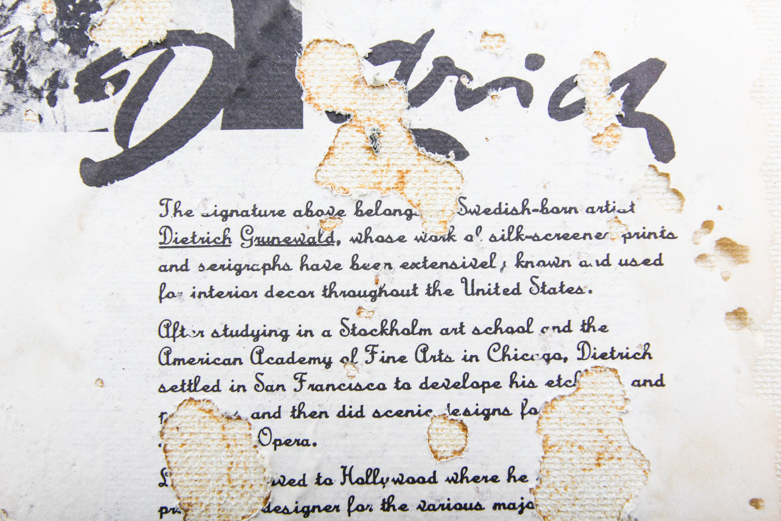 Dietrich
The signature above belong Swedish-born artist
Dietrich Grunewald, whose work of silk-screene prints
and serigraphs have been extensively known and used
for interior decor throughout the United States.
After studying in a Stockholm art school and the
American Academy of Fine Arts in Chicago, Dietrich
settled in San Francisco to develope his etch and
and then did scenic designs fo
Opera.
ved to Hollywood where he
designer for the various majo